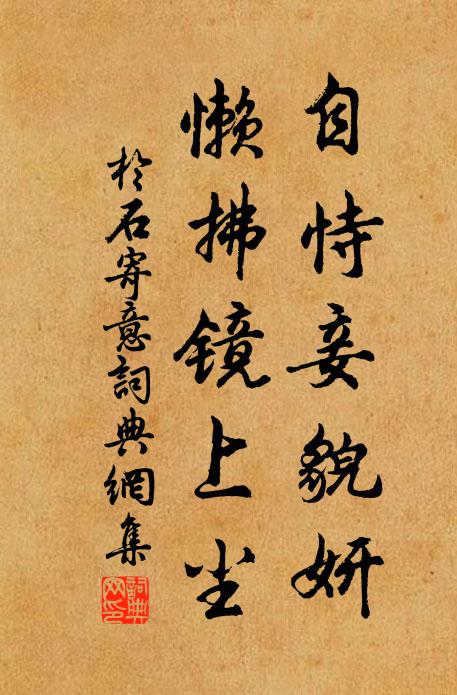 自恃妾貌妍
懒拂镜上尘
於石寄意詞典網集
詞典网印